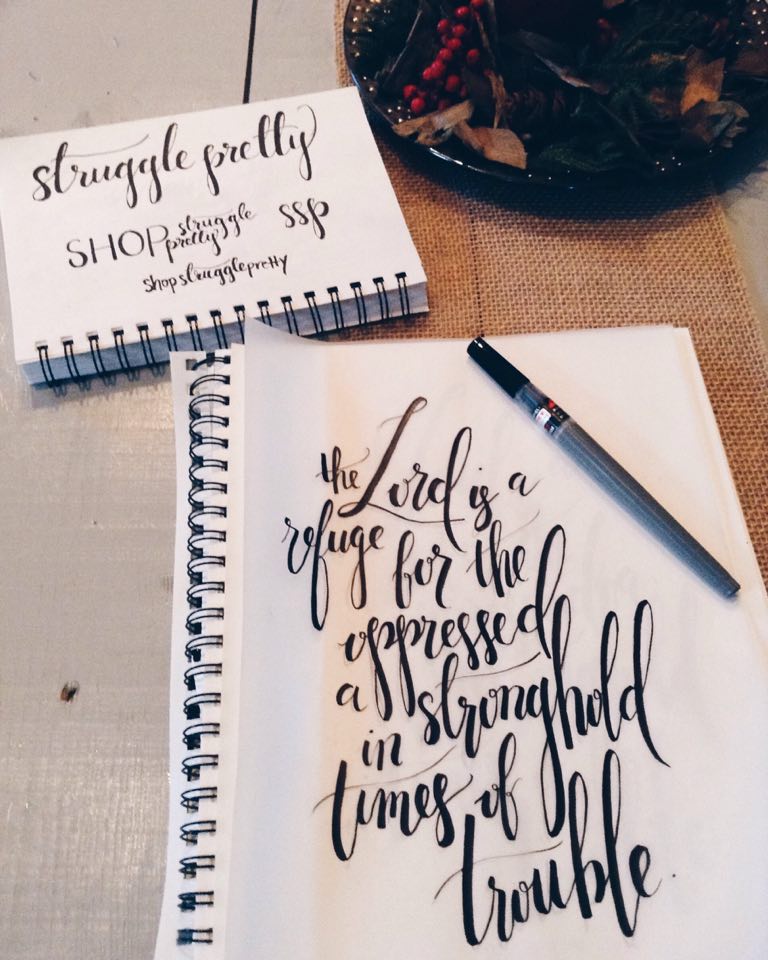 struggle pretty
SHOP struggle pretty ssp
shopstrugglepretty
the Lord is a
refuge for the
oppressed
a stronghold
in
times of
trouble.